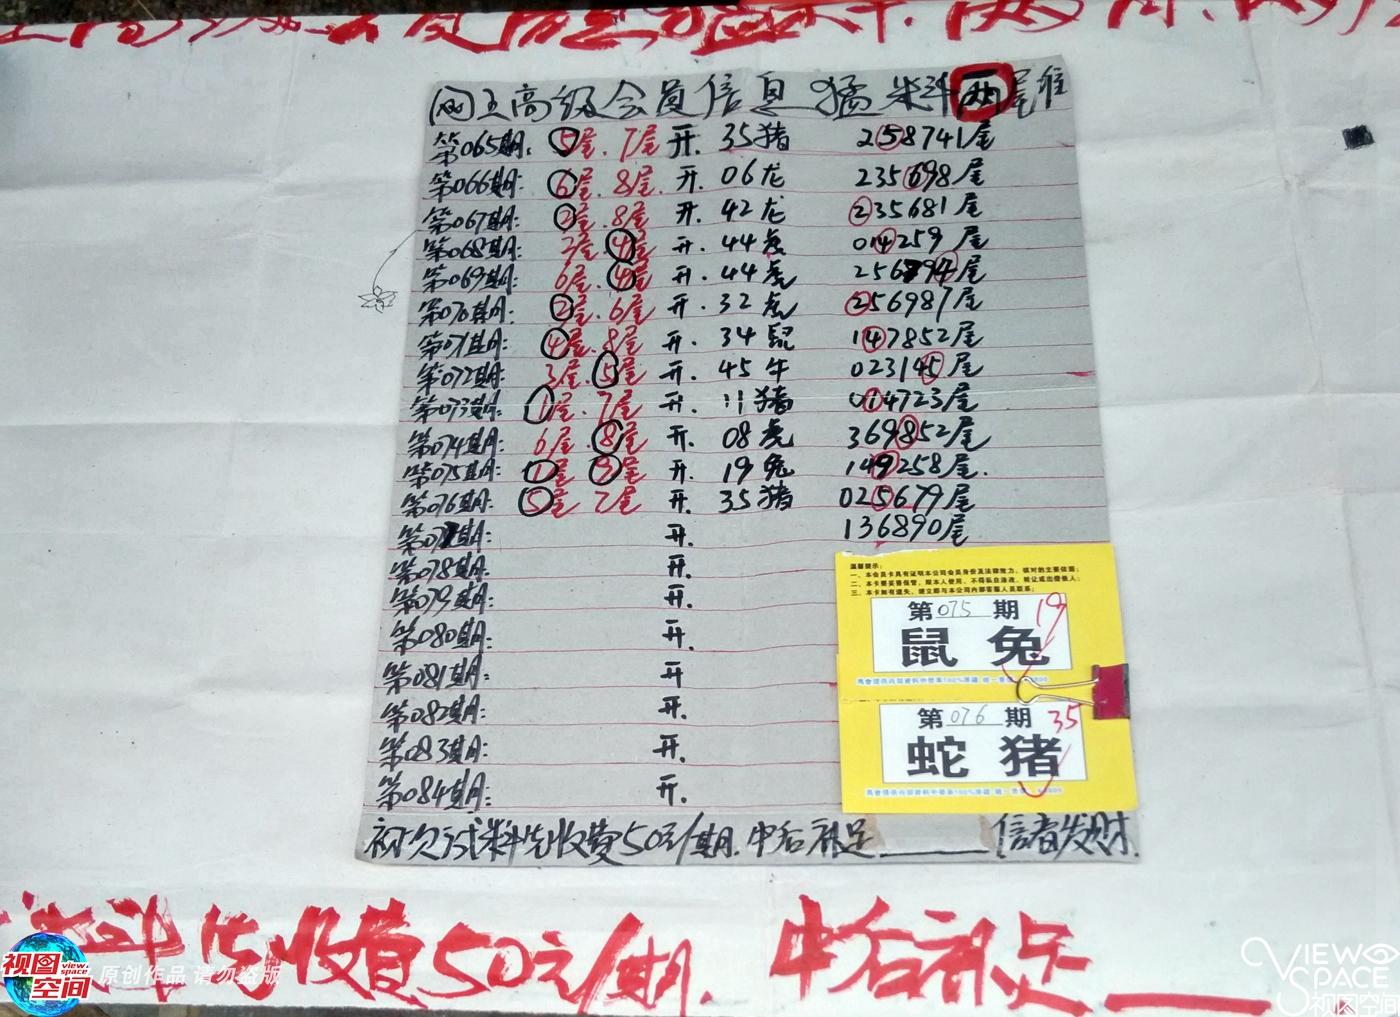 网上高级会员信息猛料两尾准
第065期: 5尾.7尾 开. 35猪 258741尾
第066期: 6尾.8尾. 开. 06龙 235698尾
第067期: 2尾.8尾 开. 42龙 235681尾
第068期: 2尾.4尾 开. 44虎 014259尾
第069期: 6尾.4尾 开. 44虎 256794尾
第070期: 2尾.6尾 开. 32虎 256987尾
第071期: 4尾.8尾 开. 34鼠 147852尾
第072期: 3尾.5尾 开. 45牛 023145尾
第073期: 1尾.7尾 开. 11猪 014723尾
第074期: 6尾.8尾 开. 08虎 369852尾
第075期: 1尾 9尾 开. 19兔 149258尾.
第076期: 5尾 7尾 开. 35猪 025679尾
第077期: 开. 136890尾
第078期: 开.
第079期: 开.
第080期: 开.
第081期: 开
第082期: 开.
第083期: 开.
第084期: 开.
温馨提示:
一、本会员卡具有证明本公司会员身份及法律效力,核对的主要依据;
二、本卡要妥善保管,限本人使用,不得私自涂改,转让或出借他人;
三、本卡如有遗失,请立即与本公司内部客服人员联系;
第075期 19
鼠 兔
第076期 35
蛇 猪
初次试料先收费50元/期.中后补足______信者发财.
料先收费50元/期.中后补足______
视图空间
view.space
原创作品 请勿盗版
VIEW SPACE
视图空间